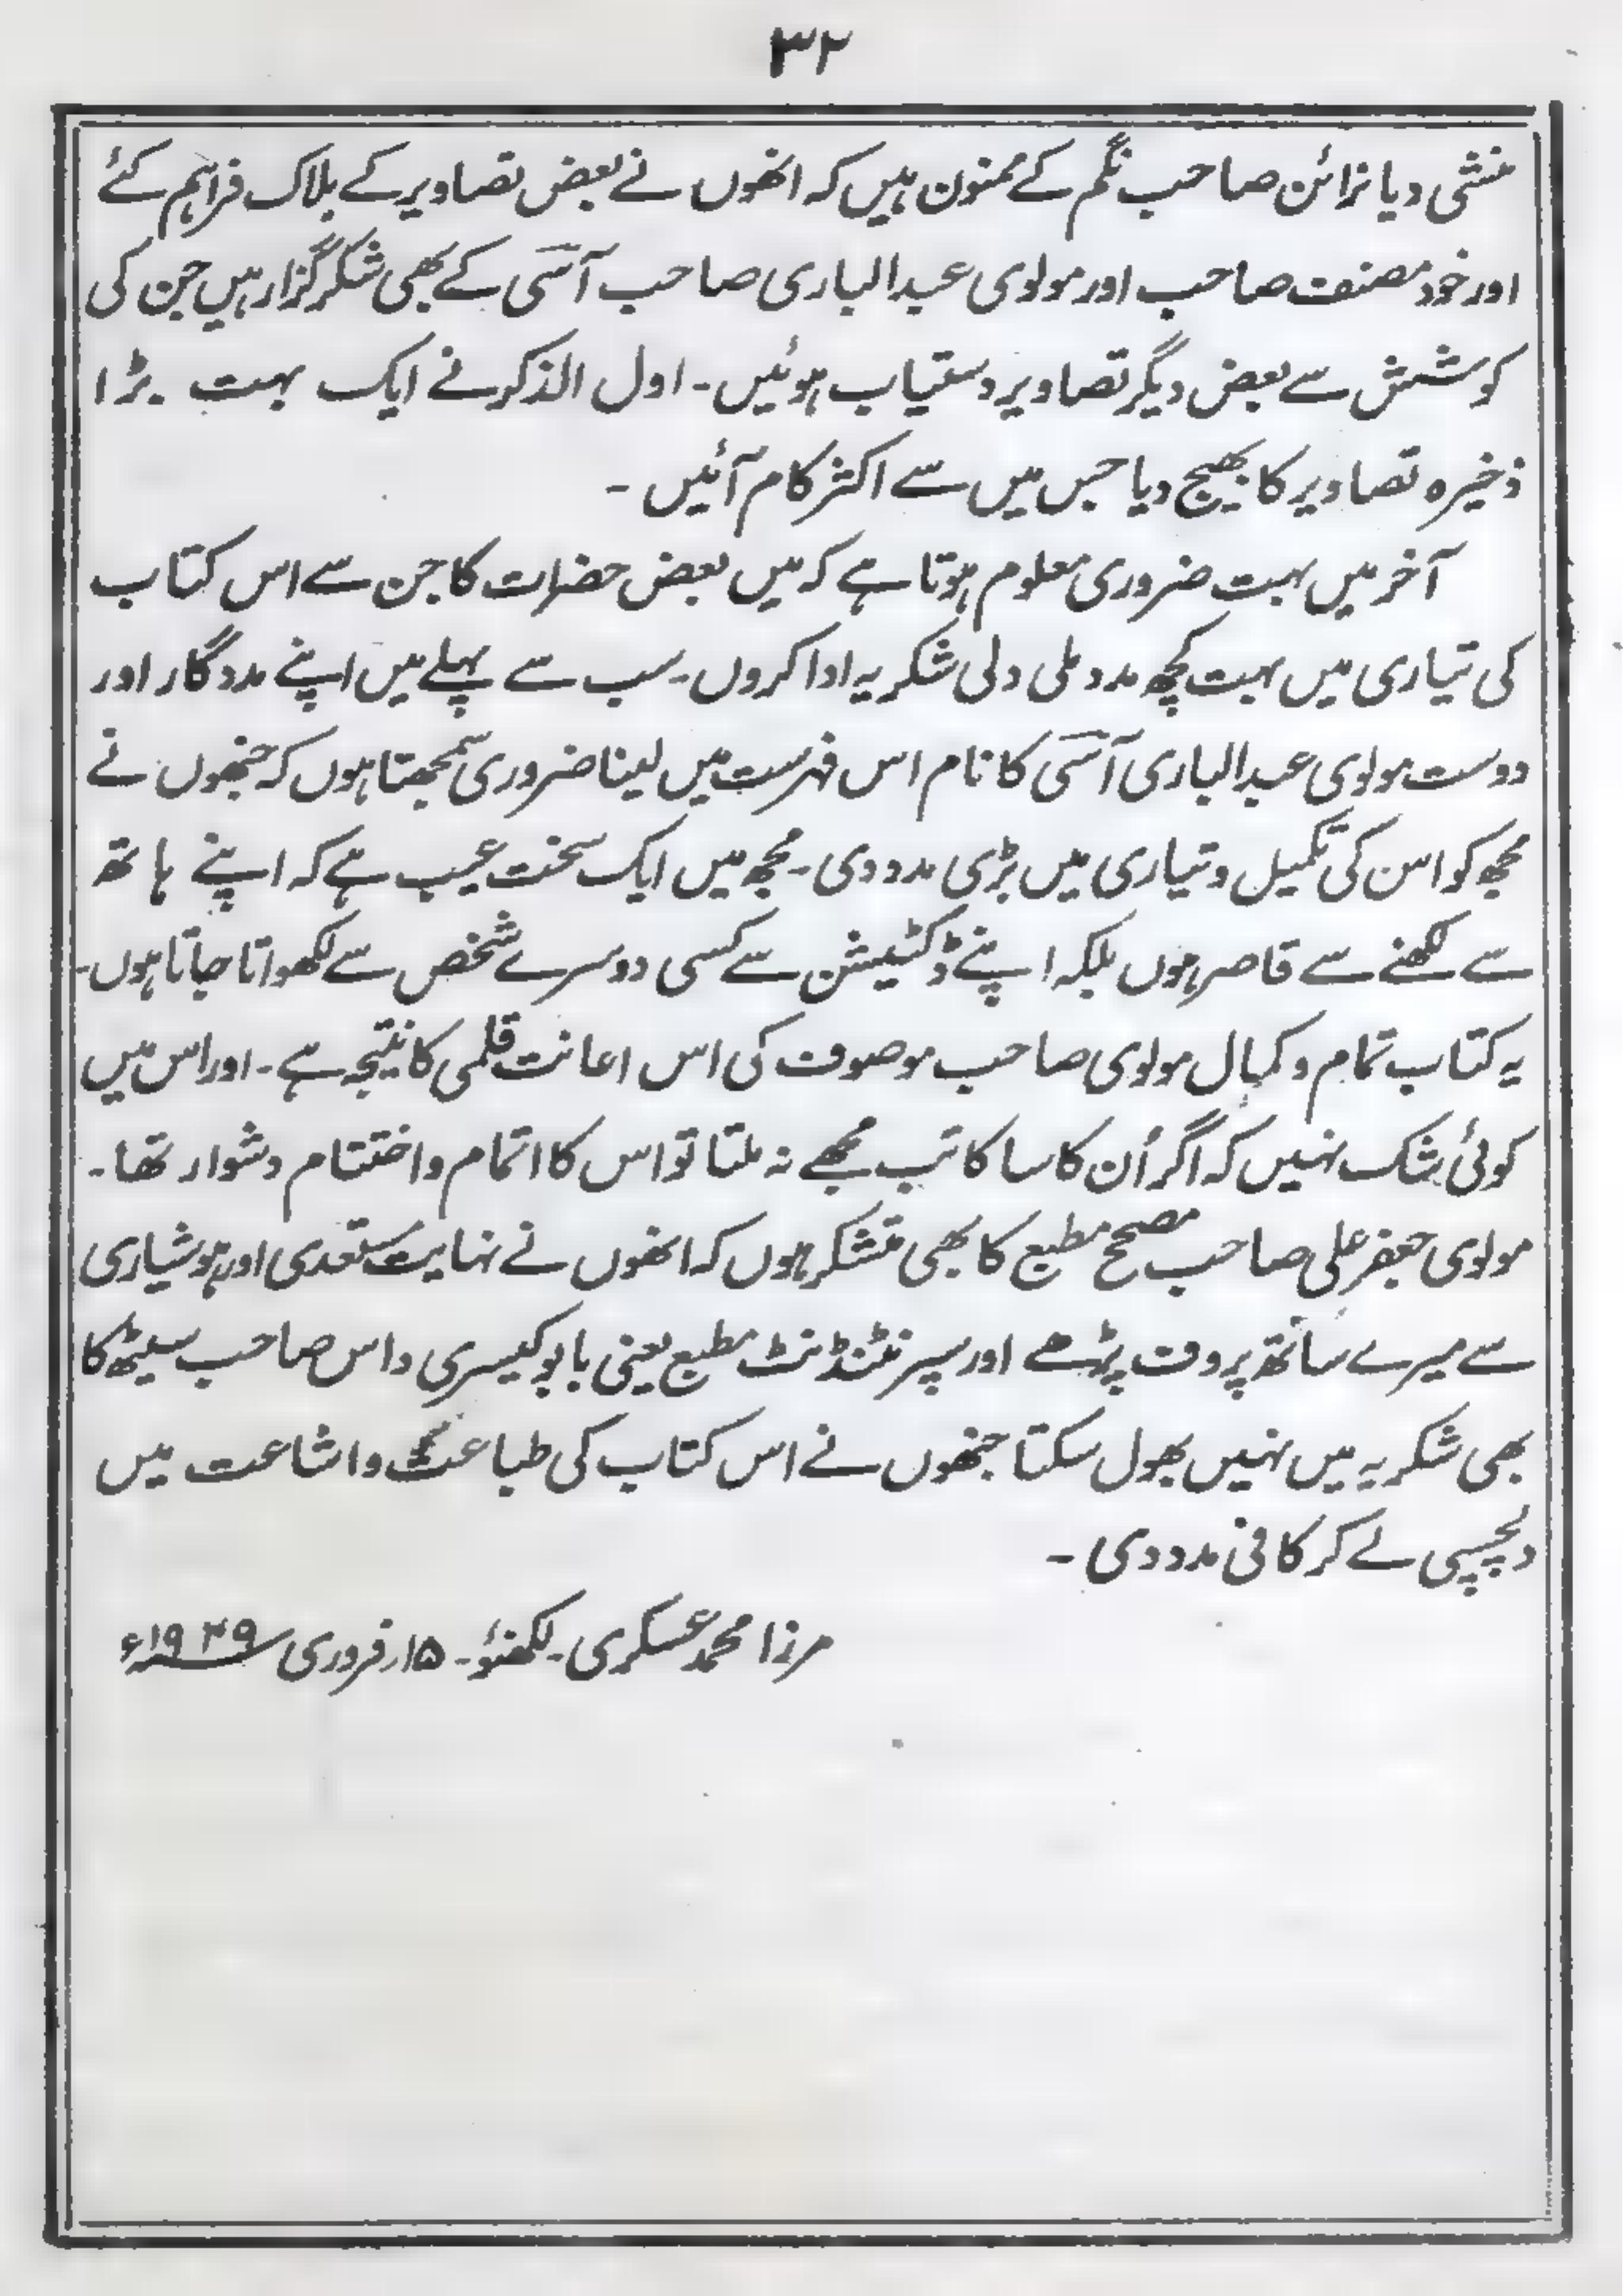 ۳۲
منشی دیا نرائن صاحب نگم کے ممنون ہیں کہ انھوں نے بعض تصاویر کے بلاک فراہم کئے
اور خود مصنف صاحب اور مولوی عبدالباری صاحب آسی کے بھی شکر گزار ہیں جن کی
کوشش سے بعض دیگر تصاویر دستیاب ہوئیں۔ اول الذکر نے ایک بہت بڑا
ذخیرہ تصاویر کا بھیج دیا جس میں سے اکثر کام آئیں ۔
آخر میں بہت ضروری معلوم ہوتا ہے کہ میں بعض حضرات کا جن سے اس کتاب
کی تیاری میں بہت کچھ مدد ملی دلی شکریہ ادا کروں۔ سب سے پہلے میں اپنے مددگار اور
دوست مولوی عبدالباری آسی کا نام اس فہرست میں لینا ضروری سمجھتا ہوں کہ جنھوں نے
مجھ کو اس کی تکمیل و تیاری میں بڑی مدد دی۔ مجھ میں ایک سخت عیب ہے کہ اپنے ہاتھ
سے لکھنے سے قاصر ہوں بلکہ اپنے ڈکٹیشن سے کسی دوسرے شخص سے لکھواتا جاتا ہوں۔
یہ کتاب تمام و کمال مولوی صاحب موصوف کی اس اعانت قلمی کا نتیجہ ہے۔ اور اس میں
کوئی شک نہیں کہ اگر اُن کا سا کاتب مجھے نہ ملتا تو اس کا اتمام و اختتام دشوار تھا۔
مولوی جعفر علی صاحب مصحح مطبع کا بھی متشکر ہوں کہ انھوں نے نہایت مستعدی اور ہوشیاری
سے میرے ساتھ پروف پڑھے اور سپرنٹنڈنٹ مطبع یعنی بابو کیسری داس صاحب سیٹھ کا
بھی شکریہ میں نہیں بھول سکتا جنھوں نے اس کتاب کی طباعت و اشاعت میں
دلچسپی لے کر کافی مدد دی ۔
مرزا محمد عسکری۔ لکھنؤ۔ ۱۵؍ فروری ۱۹۲۹ء